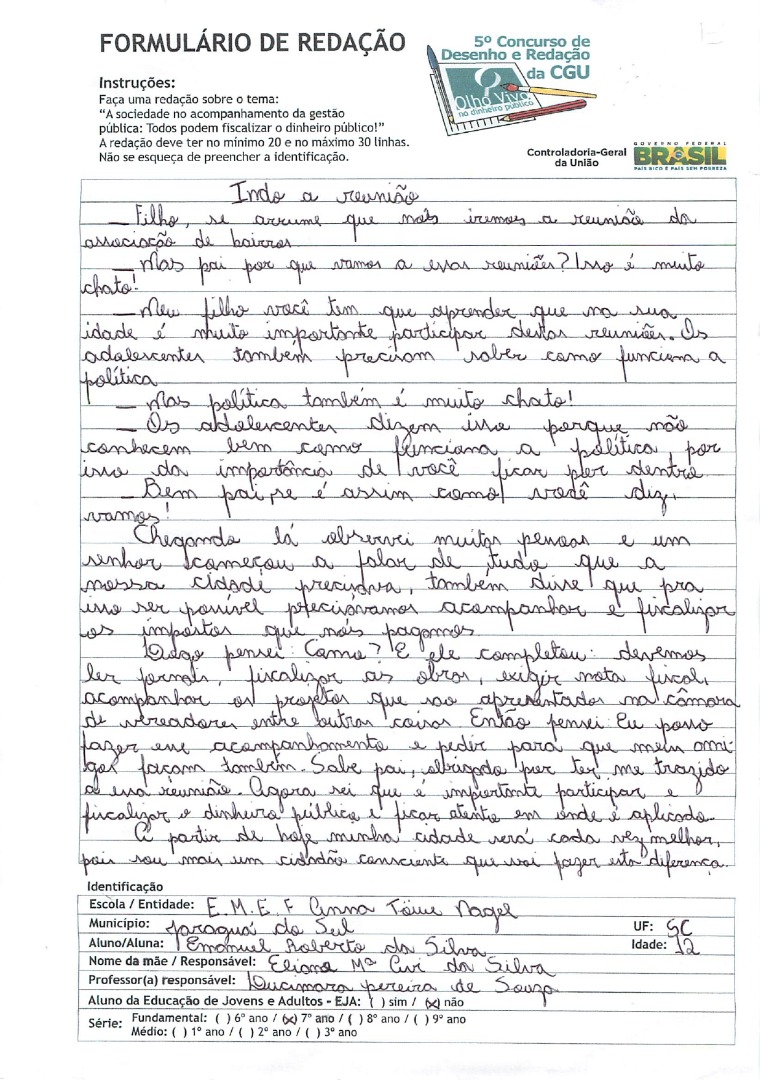 FORMULÁRIO DE REDAÇÃO
5º Concurso de
Desenho e Redação
da CGU
Olho Vivo
no dinheiro público
Instruções:
Faça uma redação sobre o tema:
"A sociedade no acompanhamento da gestão
pública: Todos podem fiscalizar o dinheiro público!"
A redação deve ter no mínimo 20 e no máximo 30 linhas.
Não se esqueça de preencher a identificação.
Controladoria-Geral
da União
GOVERNO FEDERAL
BRASIL
PAÍS RICO É PAÍS SEM POBREZA
Indo a reunião
— Filho, se arrume que nós iremos a reunião da
associação de bairros
— Mas pai por que vamos a essas reuniões? Isso é muito
chato!
— Meu filho você tem que aprender que na sua
idade é muito importante participar destas reuniões. Os
adolescentes tambem precisam saber como funciona a
política
— Mas política também é muito chato!
— Os adolescentes dizem isso porque não
conhecem bem como funciona a política, por
isso da importância de você ficar por dentro
— Bem pai, se é assim como você diz,
vamos!
Chegando lá observei muitas pessoas e um
senhor começou a falar de tudo que a
nossa cidade precisava, também disse que pra
isso ser possível precisávamos acompanhar e fiscalizar
os impostos que nós pagamos
Logo pensei: Como? E ele completou: devemos
ler jornais, fiscalizar as obras, exigir nota fiscal,
acompanhar os projetos que são apresentados na câmara
de vereadores entre outras coisas. Então pensei Eu posso
fazer esse acompanhamento e pedir para que meus ami-
gos façam também. Sabe pai, obrigado por ter me trazido
a essa reunião. Agora sei que é importante participar e
fiscalizar o dinheiro público e ficar atento em onde é aplicado.
A partir de hoje minha cidade será cada vez melhor,
pois sou mais um cidadão consciente que vai fazer esta diferença.
Identificação
Escola / Entidade: E.M.E.F Anna Töwe Nagel
Município: Jaraguá do Sul UF: SC
Aluno/Aluna: Emanuel Roberto da Silva Idade: 12
Nome da mãe / Responsável: Eliane Mª Civi da Silva
Professor(a) responsável: Lucimara pereira de Souza
Aluno da Educação de Jovens e Adultos - EJA: ( ) sim / (x) não
Série: Fundamental: ( ) 6º ano / (x) 7º ano / ( ) 8º ano / ( ) 9º ano
Médio: ( ) 1º ano / ( ) 2º ano / ( ) 3º ano